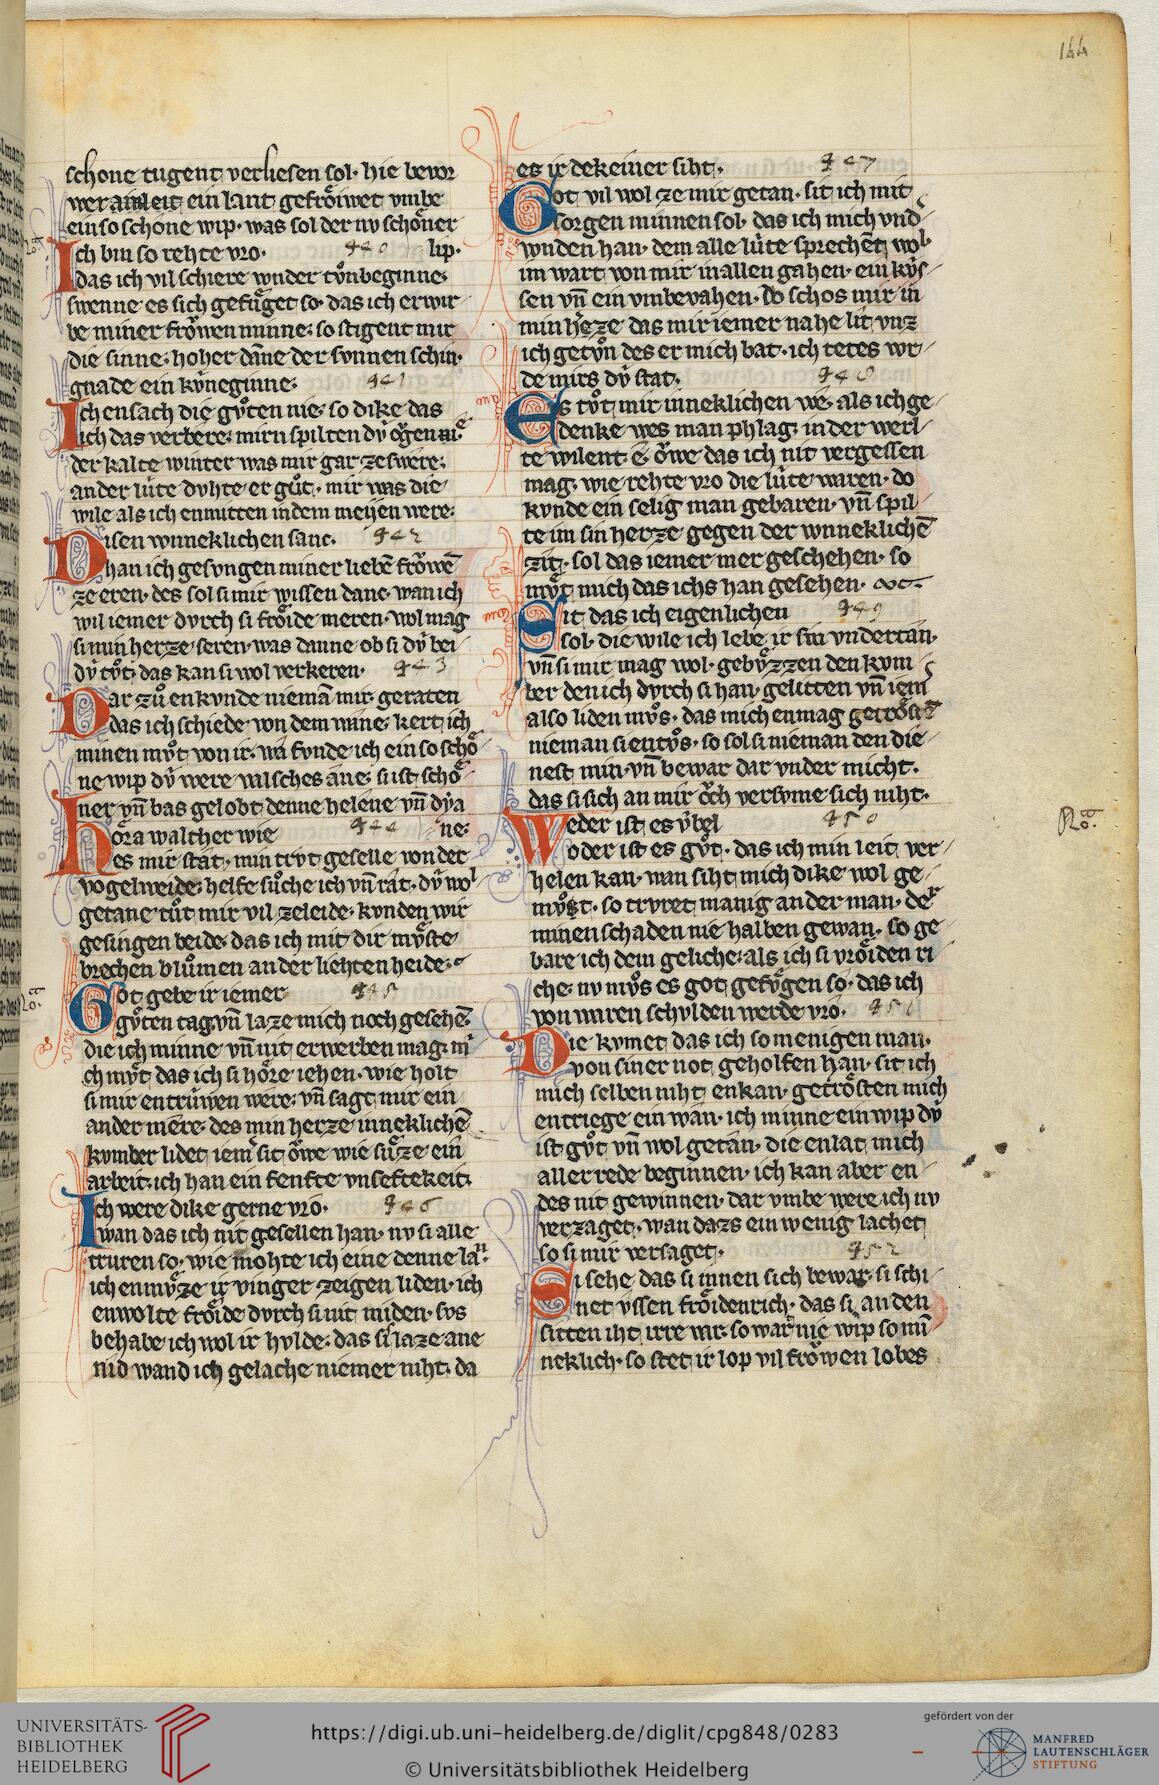 144
schone tugent verliesen sol· hie bevor
wer ein leit ein lant gefroͤiwet vmbe
ein so schone wip· was sol der nv schoͤner
Ich bin so rehte vro· 440 lip·
das ich vil schiere wnder tuͦn beginne·
swenne es sich gefuͤget so· das ich erwir
be miner froͮwen minne· so stigent mir
die sinne· hoher dāne der svnnen schin·
gnade ein kv́neginne· 441
Ich ensach die guͦten nie· so dike das
ich das verbere· mirn spilten dv́ oͮgen ie
der kalte winter was mir gar ze swere·
ander lúte dvhte er guͦt· mir was die
wile als ich enmitten in dem meijen were·
Disen wnneklichen sanc· 442
han ich gesvngen miner liebē froͮwē
ze eren· des sol si mir wissen danc· wan ich
wil iemer dvrch si froͤide meren· wol mag
si min herze seren· was danne ob si dv́ bei
dv́ tuͦt· das kan si wol verkeren· 443
Dar zuͦ enkvnde niemā mir geraten
das ich schiede von dem wane· kert ich
minen muͦt von ir· wa fvnde ich ein so schoͤ
ne wip dv́ were valsches ane· si ist schoͤ
ner vn̄ bas gelobt denne helene vn̄ dýa
hoͤra walther wie 444 ne·
es mir stat· min trvt geselle von der
vogelweide· helfe suͦche ich vn̄ rat· dv́ wol
getane tuͦt mir vil ze leide· kvnden wir
gesingen beide· das ich mit dir muͤste
brechen bluͦmen an der liehten heide·
Got gebe ir iemer 445
guͦten tag vn̄ laze mich noch gesehē·
die ich minne vn̄ nit erwerben mag· mi
ch muͤt das ich si hoͤre iehen· wie holt
si mir entrúwen were· vn̄ sagt mir ein
ander mere· des min herze inneklichē
kvmber lidet iem̄ sit oͮwe wie suͤze ein
arbeit· ich han ein senfte vnseftekeit·
Ich were dike gerne vro· 446
wan das ich nit gesellen han· nv si alle
truren so· wie mohte ich eine denne lan·
ich enmuͤze ir vinger zeigen liden· ich
enwolte froͤide dvrch si nit miden· svs
behabe ich wol ir hvlde· das si laze ane
nid wand ich gelache niemer niht· da
es ir dekeiner siht· 447
Got vil wol ze mir getan· sit ich mit
sorgen minnen sol· das ich mich vnd
wnden han· dem alle lúte sprechent wol·
im wart von mir in allen gahen· ein kv́s
sen vn̄ ein vmbevahen· do schos mir in
min h̄ze das mir iemer nahe lit vnz
ich getuͦn des er mich bat· ich tetes wr
de mirs dv́ stat· 448
Es tuͦt mir inneklichen we· als ich ge
denke wes man phlag· in der werl
te wilent e· oͮwe das ich nit vergessen
mag· wie rehte vro die lúte waren· do
kvnde ein selig man gebaren· vn̄ spil
te im sin herze gegen der wnneklichē
zit· sol das iemer mer geschehen· so
muͤt mich das ichs han gesehen·
Sit das ich eigenlichen 449
sol· die wile ich lebe ir sin vndertan·
vn̄ si mir mag wol· gebuͤzzen den kvm
ber den ich dvrch si han· gelitten vn̄ iem̄
also liden muͦs· das mich enmag getroͤstē
nieman si entuͦs· so sol si nieman den die
nest min· vn̄ bewar dar vnder micht·
das si sich an mir oͮch versvme sich niht·
Weder ist es v́bel 450
oder ist es guͦt· das ich min leit ver
helen kan· wan siht mich dike wol ge
muͦt· so trvret manig ander man· der
minen schaden nie halben gewan· so ge
bare ich dem geliche· als ich si vroͤiden ri
che· nv muͦs es got gefuͤgen so· das ich
von waren schvlden werde vro· 451
Die kvmet das ich so menigen man·
von siner not geholfen han· sit ich
mich selben niht enkan· getroͤsten mich
entriege ein wan· ich minne ein wip dv́
ist guͦt vn̄ wol getan· die enlat mich
aller rede beginnen· ich kan aber en
des nit gewinnen· dar vmbe were ich nv
verzaget· wan dazs ein wenig lachet
so si mir versaget· 452
Si sehe das si innen sich bewar· si schi
net vssen froͤidenrich· das si an den
sitten iht irre var· so wart nie wip so mi
neklich· so stet ir lop vil froͮwen lobes
UNIVERSITÄTS-
BIBLIOTHEK
HEIDELBERG
https://digi.ub.uni-heidelberg.de/diglit/cpg848/0283
© Universitätsbibliothek Heidelberg
gefördert von der
MANFRED
LAUTENSCHLÄGER
STIFTUNG